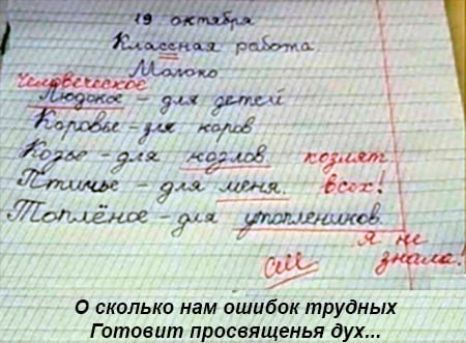 19 октября
Классная работа
Молоко
Человеческое
Людское - для детей
Коровье - для коров
Козье - для козлов. козлят
Птичье - для меня. Всех!
Топлёное - для утоплеников.
Я не
знала!
См
О сколько нам ошибок трудных
Готовит просвященья дух...